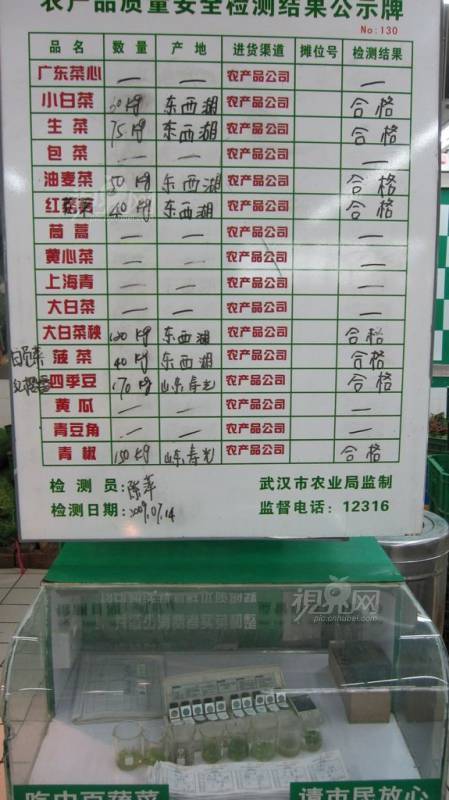 农产品质量安全检测结果公示牌
No:130
品名 数量 产地 进货渠道 摊位号 检测结果
广东菜心 — — 农产品公司 —
小白菜 30kg 东西湖 农产品公司 合格
生菜 75kg 东西湖 农产品公司 合格
包菜 — — 农产品公司 —
油麦菜 50kg 东西湖 农产品公司 合格
红菜 40kg 东西湖 农产品公司 合格
茼蒿 — — 农产品公司 —
黄心菜 — — 农产品公司 —
上海青 — — 农产品公司 —
大白菜 — — 农产品公司 —
大白菜秧 120kg 东西湖 农产品公司 合格
菠菜 40kg 东西湖 农产品公司 合格
四季豆 170kg 山东寿光 农产品公司 合格
黄瓜 — — 农产品公司 —
青豆角 — — 农产品公司 —
青椒 150kg 山东寿光 农产品公司 合格
检测员:陈萍 武汉市农业局监制
检测日期:2009.07.14 监督电话:12316
视界网
pic.cnhubei.com
吃中百蔬菜 请市民放心